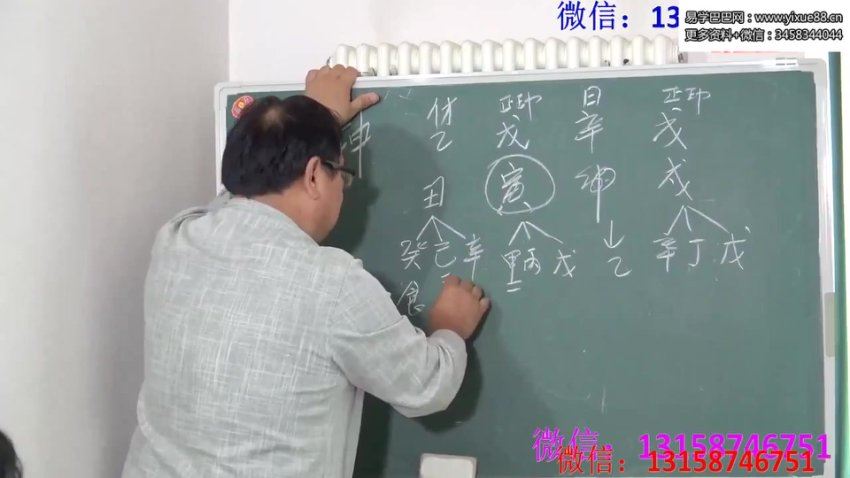 微信：13
易学巴巴网：www.yixue88.cn
更多资料+微信：3458344044
坤 偩 正印 日 正印
乙 戊 辛 戊
丑 寅 卯 戌
癸己辛 甲丙戊 乙 辛丁戊
食
微信：13158746751
微信：13158746751